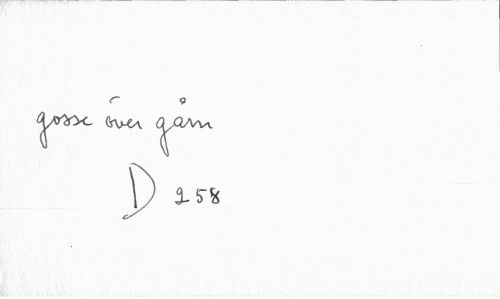 gosse över gårn
D 258